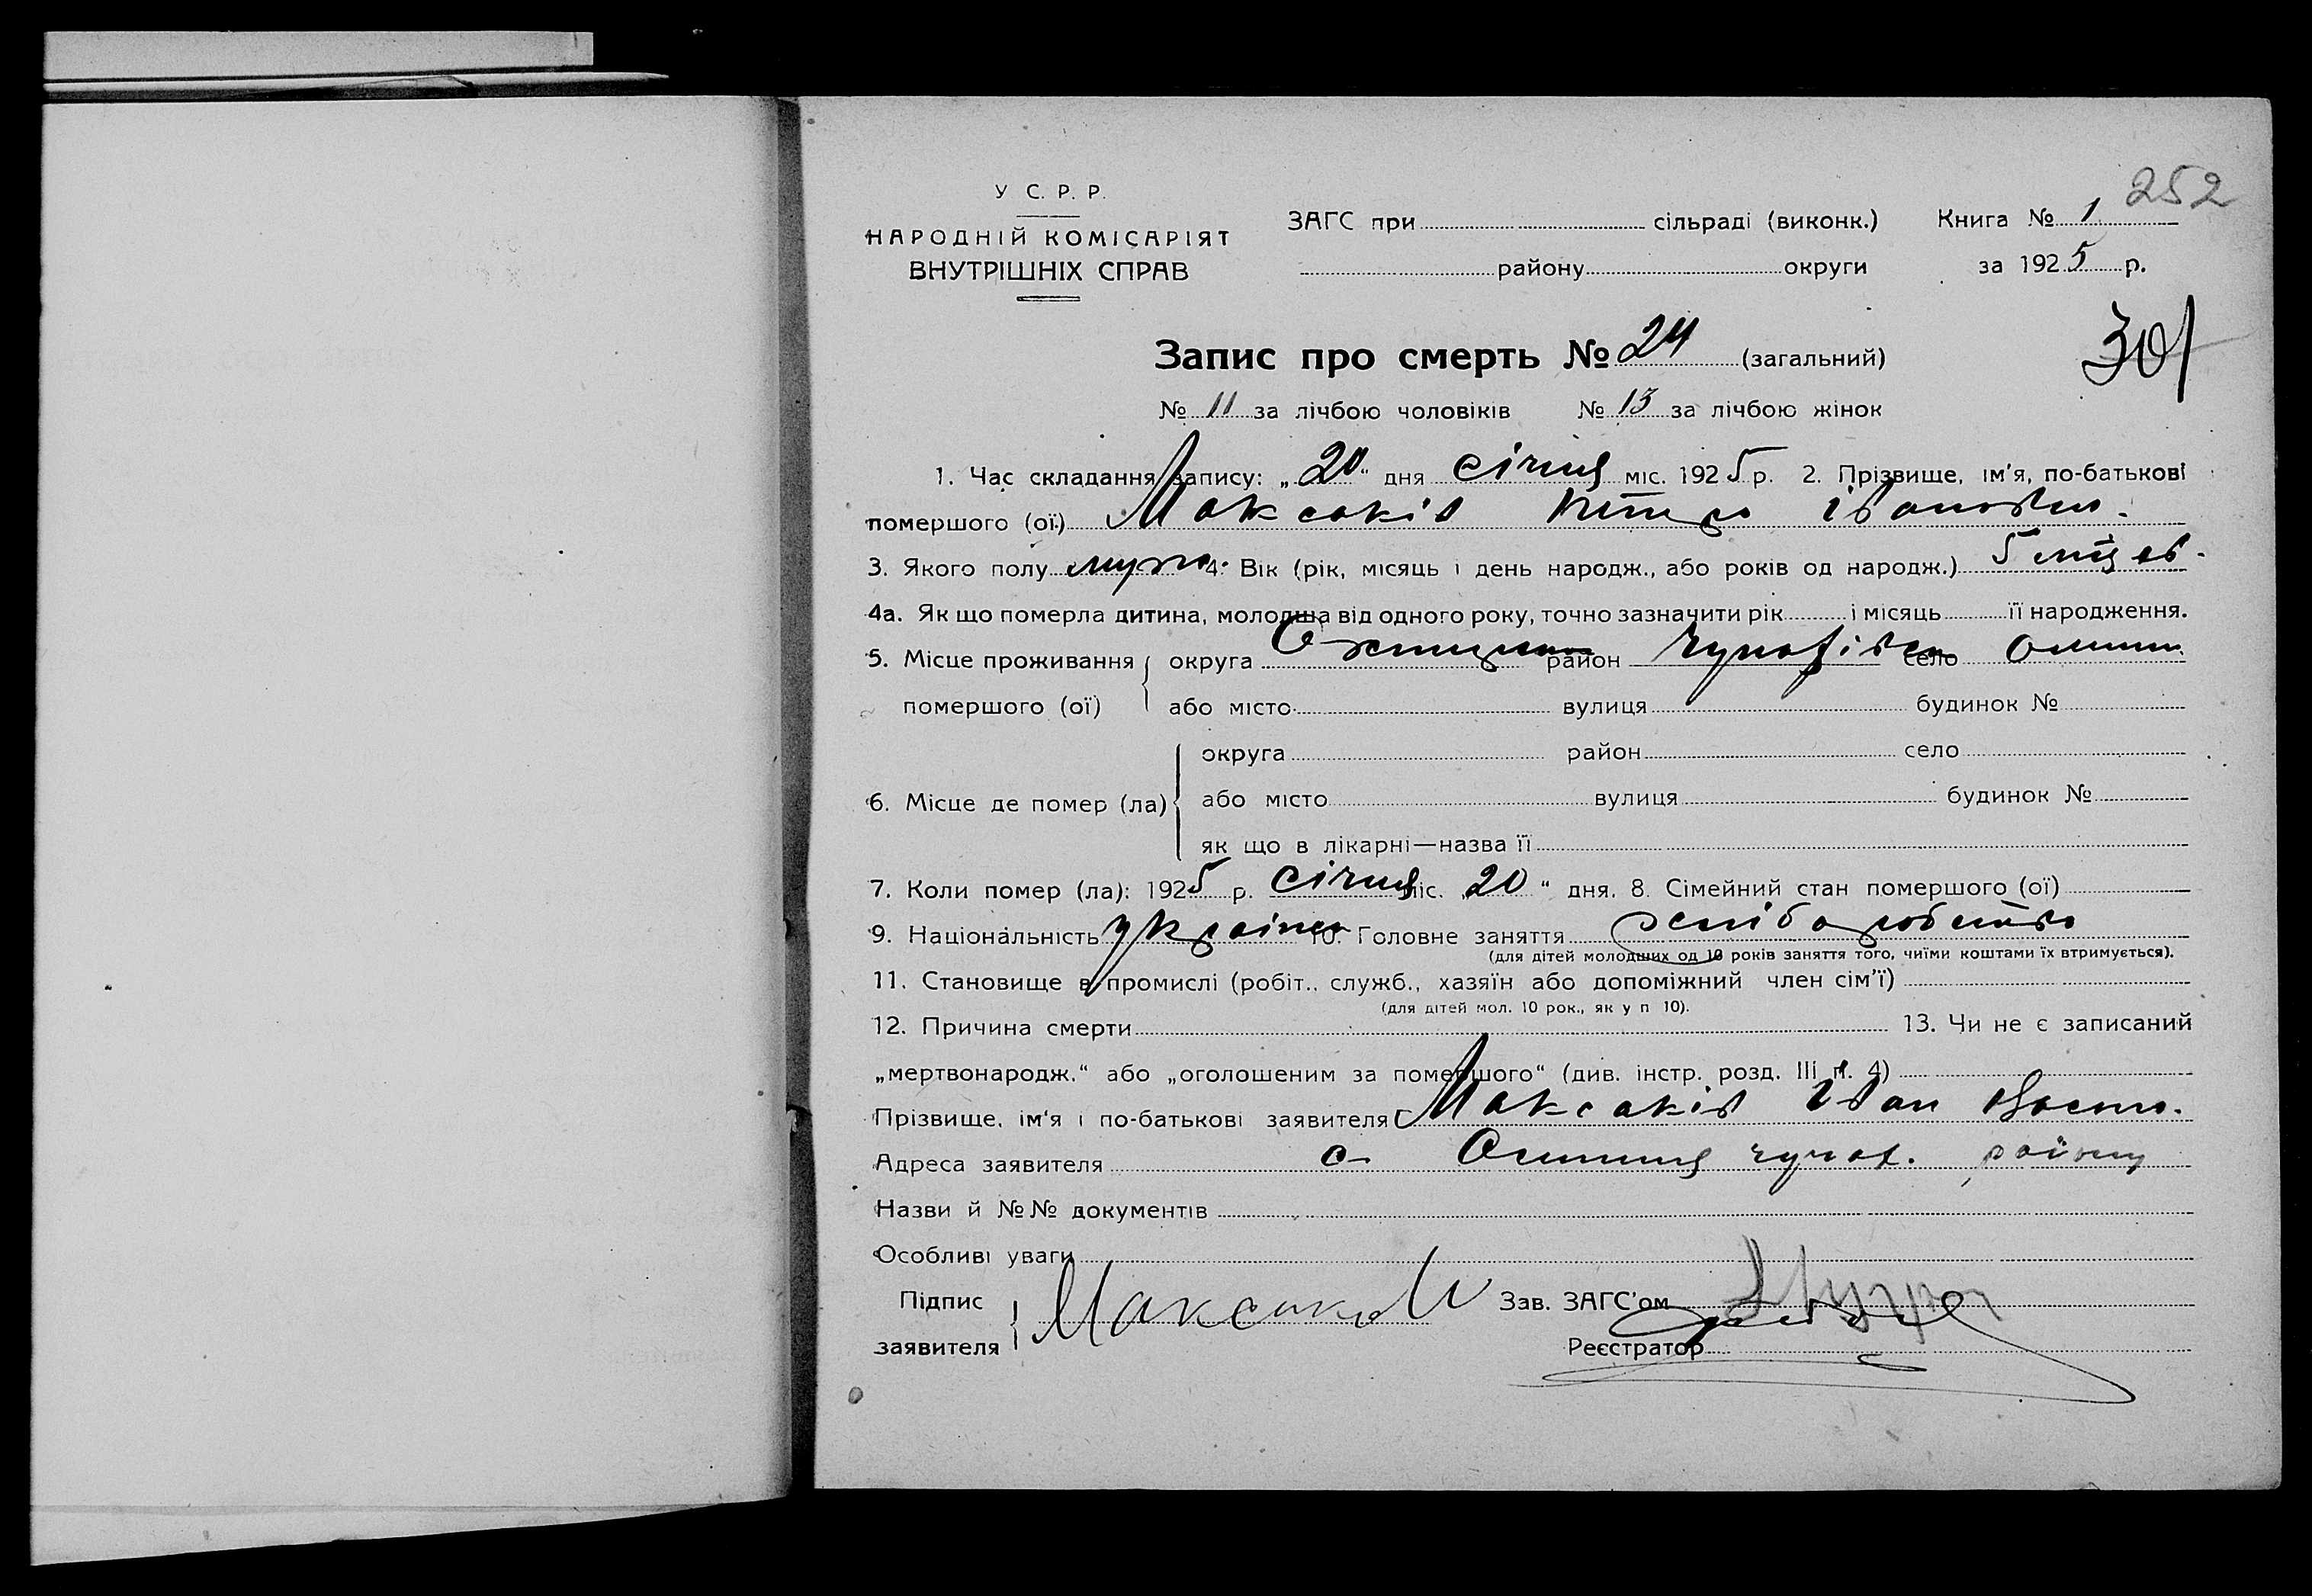 252
У С. Р. Р.
НАРОДНІЙ КОМІСАРІЯТ
ВНУТРІШНІХ СПРАВ
ЗАГС при сільраді (виконк.) Книга № 1
району округи за 1925 р.
301
Запис про смерть № 24 (загальний)
№ 11 за лічбою чоловіків № 13 за лічбою жінок
1. Час складання запису: „20“ дня січня міс. 1925 р. 2. Прізвище, ім'я, по-батькові
помершого (ої) Максаків Петро Іванович.
3. Якого полу муж. 4. Вік (рік, місяць і день народж., або років од народж.) 5 міс
4а. Як що померла дитина, молодша від одного року, точно зазначити рік і місяць її народження.
5. Місце проживання округа район село
помершого (ої) або місто вулиця будинок №
округа район село
6. Місце де помер (ла) або місто вулиця будинок №
як що в лікарні—назва її
7. Коли помер (ла): 1925 р. січня міс. „20“ дня. 8. Сімейний стан помершого (ої)
9. Національність україн 10. Головне заняття
(для дітей молодших од 10 років заняття того, чиїми коштами їх втримується).
11. Становище в промислі (робіт., служб., хазяїн або допоміжний член сім'ї)
(для дітей мол. 10 рок., як у п 10).
12. Причина смерти 13. Чи не є записаний
„мертвонародж.“ або „оголошеним за помершого“ (див. інстр. розд. III п. 4)
Прізвище, ім'я і по-батькові заявителя Максаків Іван
Адреса заявителя с. району
Назви й №№ документів
Особливі уваги
Підпис
заявителя
Зав. ЗАГС'ом
Реєстратор